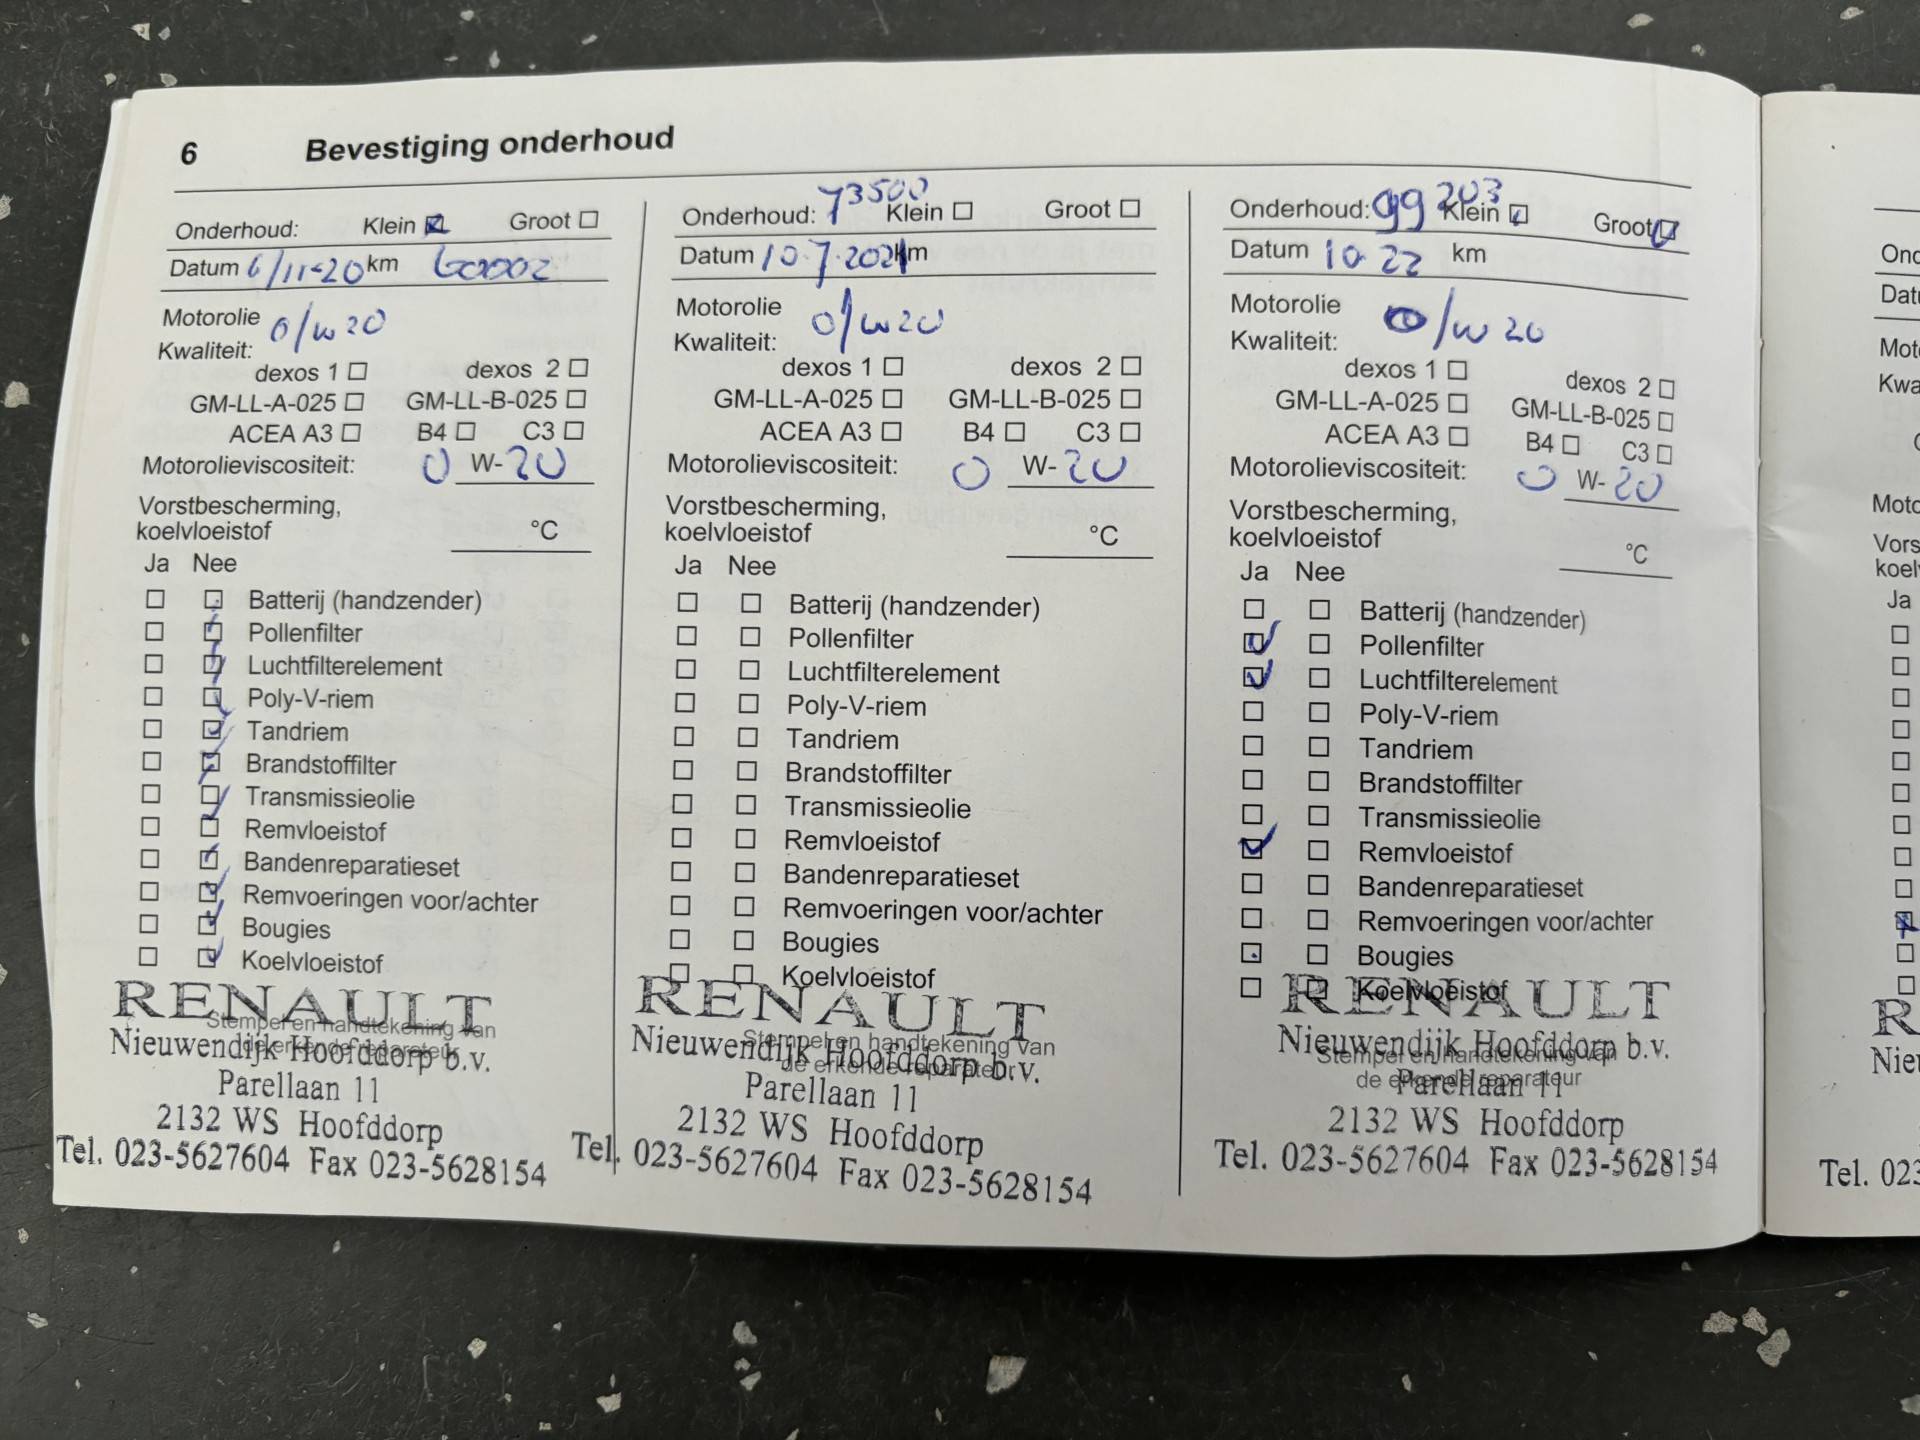 6 Bevestiging onderhoud
Onderhoud: Klein Groot
Datum 6/11-20 km 60002
Motorolie 0/w20
Kwaliteit:
dexos 1 dexos 2
GM-LL-A-025 GM-LL-B-025
ACEA A3 B4 C3
Motorolieviscositeit: 0 W- 20
Vorstbescherming,
koelvloeistof °C
Ja Nee
Batterij (handzender)
Pollenfilter
Luchtfilterelement
Poly-V-riem
Tandriem
Brandstoffilter
Transmissieolie
Remvloeistof
Bandenreparatieset
Remvoeringen voor/achter
Bougies
Koelvloeistof
RENAULT
Stempel en handtekening van
Nieuwendijk Hoofddorp b.v.
de erkende reparateur
Parellaan 11
2132 WS Hoofddorp
Tel. 023-5627604 Fax 023-5628154
73500
Onderhoud: Klein Groot
Datum 10.7.2021 km
Motorolie 0/w20
Kwaliteit:
dexos 1 dexos 2
GM-LL-A-025 GM-LL-B-025
ACEA A3 B4 C3
Motorolieviscositeit: 0 W- 20
Vorstbescherming,
koelvloeistof °C
Ja Nee
Batterij (handzender)
Pollenfilter
Luchtfilterelement
Poly-V-riem
Tandriem
Brandstoffilter
Transmissieolie
Remvloeistof
Bandenreparatieset
Remvoeringen voor/achter
Bougies
Koelvloeistof
RENAULT
Stempel en handtekening van
Nieuwendijk Hoofddorp b.v.
de erkende reparateur
Parellaan 11
2132 WS Hoofddorp
Tel. 023-5627604 Fax 023-5628154
99203
Onderhoud: Klein Groot
Datum 10 22 km
Motorolie 0/w 20
Kwaliteit:
dexos 1 dexos 2
GM-LL-A-025 GM-LL-B-025
ACEA A3 B4 C3
Motorolieviscositeit: 0 W- 20
Vorstbescherming,
koelvloeistof °C
Ja Nee
Batterij (handzender)
Pollenfilter
Luchtfilterelement
Poly-V-riem
Tandriem
Brandstoffilter
Transmissieolie
Remvloeistof
Bandenreparatieset
Remvoeringen voor/achter
Bougies
Koelvloeistof
RENAULT
Nieuwendijk Hoofddorp b.v.
Stempel en handtekening van
de erkende reparateur
Parellaan 11
2132 WS Hoofddorp
Tel. 023-5627604 Fax 023-5628154
Ja
Tel. 023